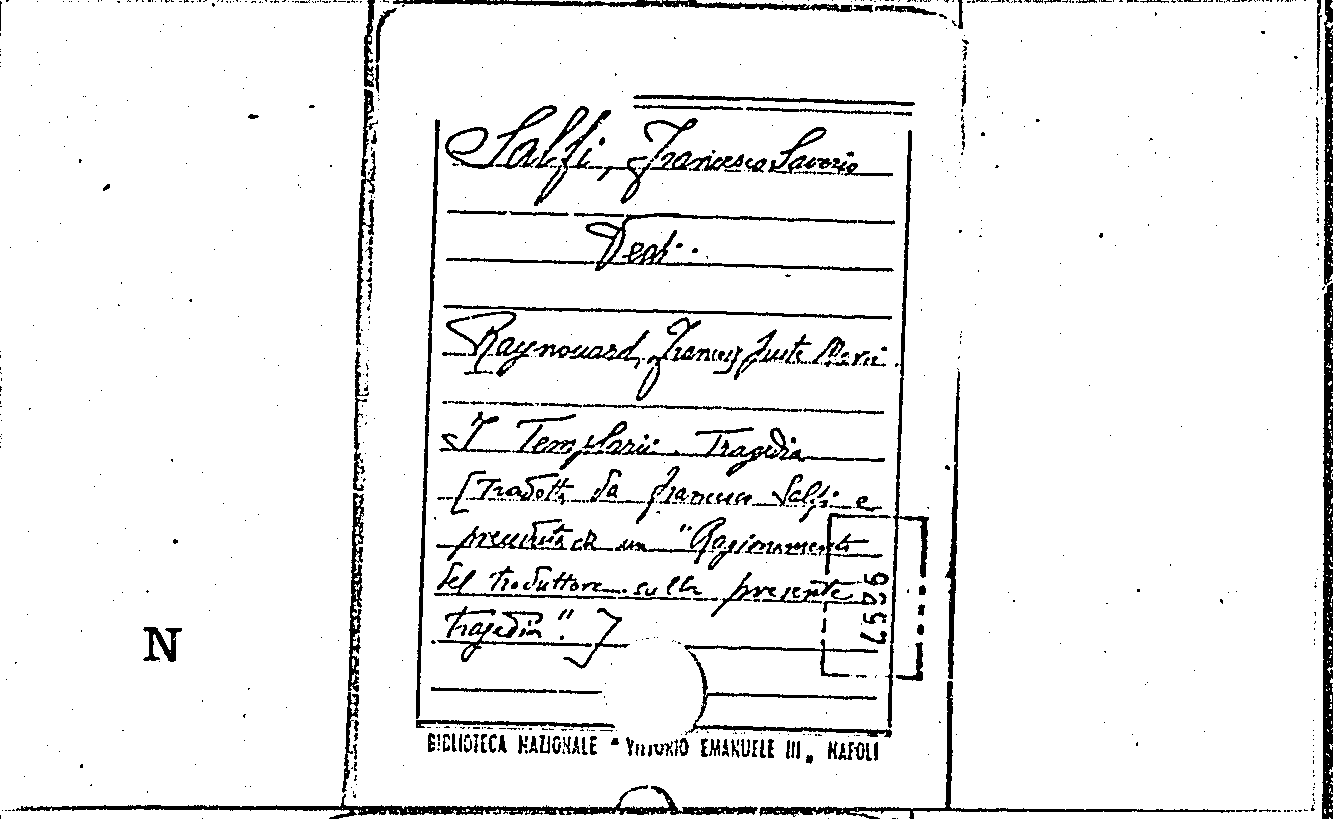 Salfi, Francesco Saverio
Vedi..
Raynouard, François Juste Marie.
I Templarii. Tragedia
[Tradotta da Francesco Salfi e
preceduta da un "Ragionamento
del traduttore sulla presente
tragedia".]
N
BIBLIOTECA NAZIONALE "VITTORIO EMANUELE III„ NAPOLI